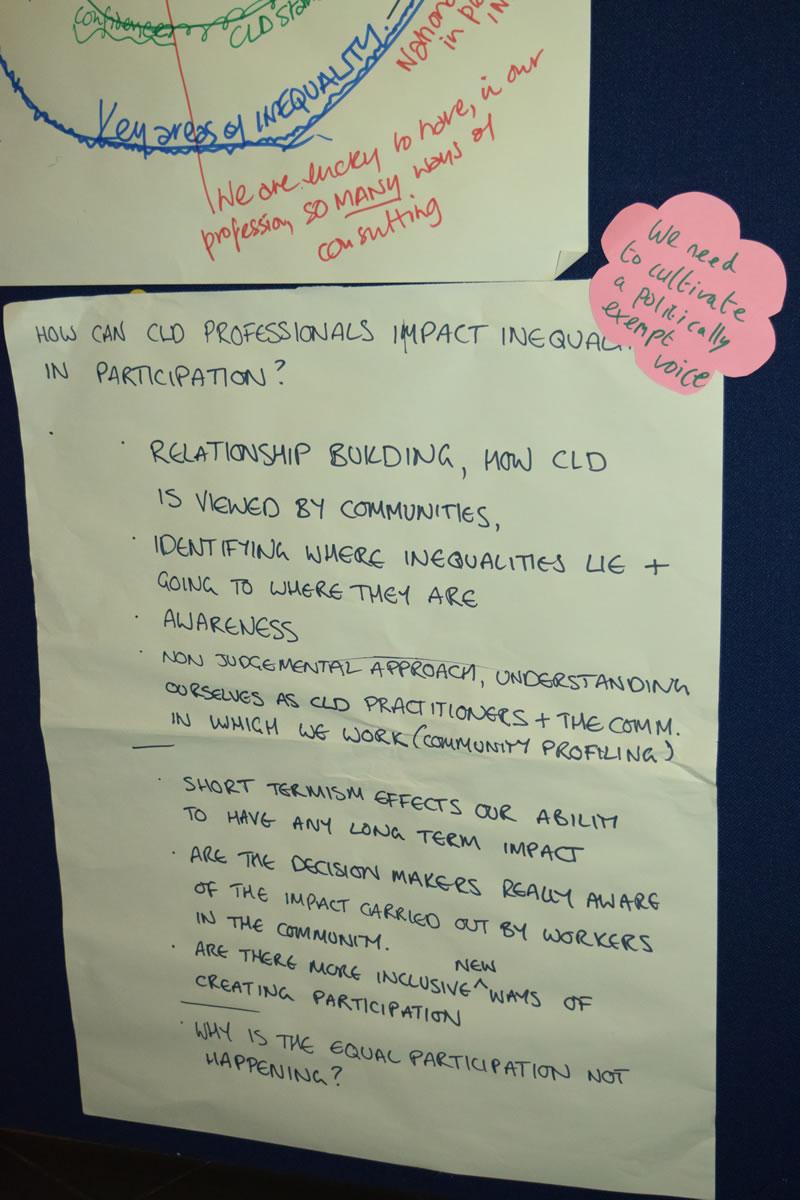 confidence
CLD Stan
Key areas of INEQUALITY
in pl
IN
We are lucky to have, in our
profession, so MANY ways of
consulting
We need
to cultivate
a politically
exempt
voice
HOW CAN CLD PROFESSIONALS IMPACT INEQUAL
IN PARTICIPATION?
· RELATIONSHIP BUILDING, HOW CLD
IS VIEWED BY COMMUNITIES,
· IDENTIFYING WHERE INEQUALITIES LIE +
GOING TO WHERE THEY ARE
· AWARENESS
· NON JUDGEMENTAL APPROACH, UNDERSTANDING
OURSELVES AS CLD PRACTITIONERS + THE COMM.
IN WHICH WE WORK (COMMUNITY PROFILING)
· SHORT TERMISM EFFECTS OUR ABILITY
TO HAVE ANY LONG TERM IMPACT
· ARE THE DECISION MAKERS REALLY AWARE
OF THE IMPACT CARRIED OUT BY WORKERS
IN THE COMMUNITY.
· ARE THERE MORE INCLUSIVE ^NEW WAYS OF
CREATING PARTICIPATION
· WHY IS THE EQUAL PARTICIPATION NOT
HAPPENING?